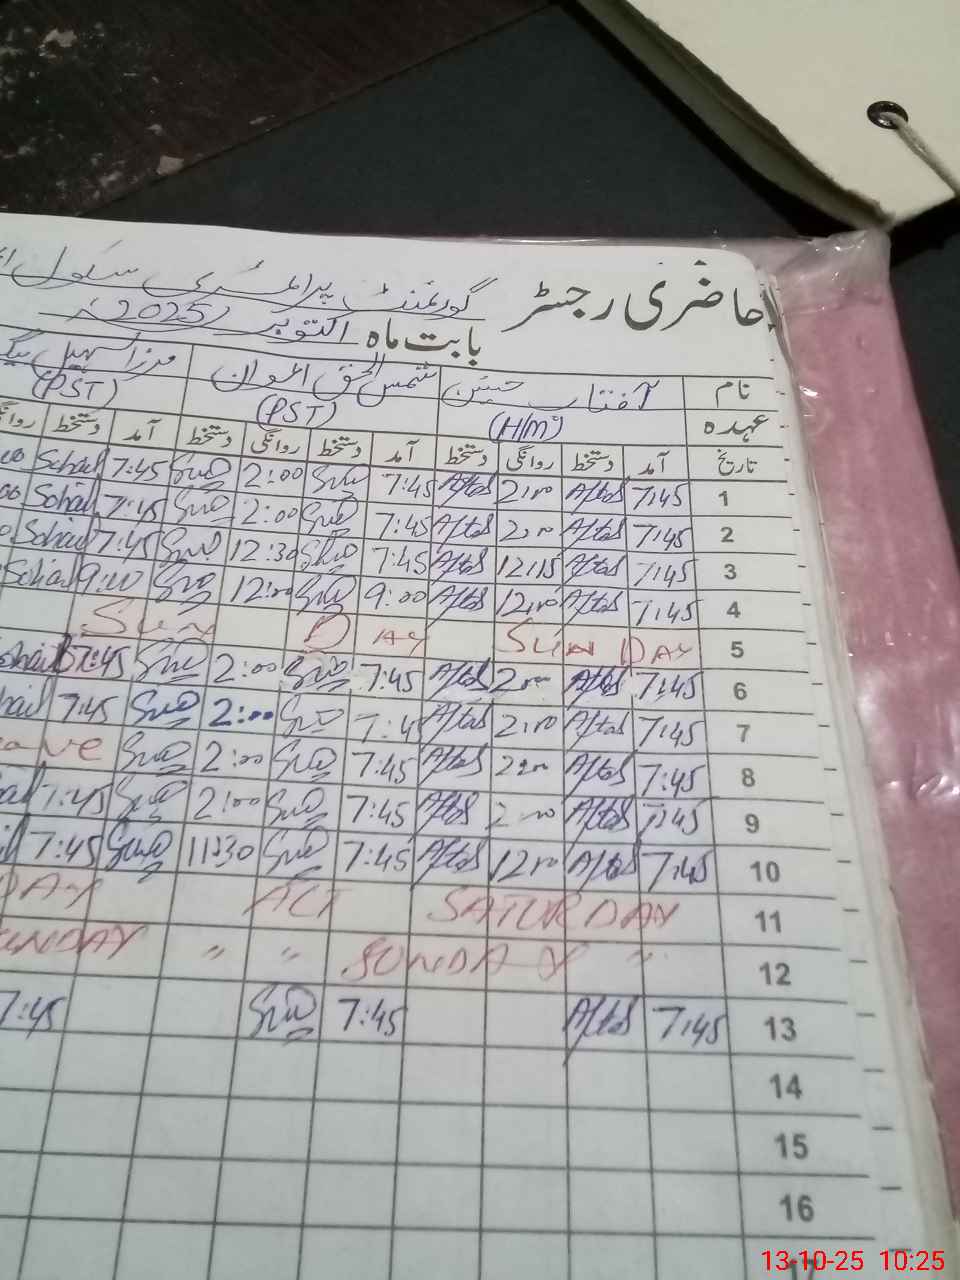 حاضری رجسٹر گورنمنٹ پرائمری سکول
بابت ماہ اکتوبر 2025
نام آفتاب حسین شمس الحق اعوان مرزا سہیل بیگ
عہدہ (HM) (PST) (PST)
تاریخ آمد دستخط روانگی دستخط آمد دستخط روانگی دستخط آمد دستخط
1 7:45 Aftab 2:00 Aftab 7:45 2:00 7:45 Sohail
2 7:45 Aftab 2:00 Aftab 7:45 2:00 7:45 Sohail
3 7:45 Aftab 12:15 Aftab 7:45 12:30 7:45 Sohail
4 7:45 Aftab 12:00 Aftab 9:00 12:00 9:00 Sohail
5 SUN DAY Sun DAY
6 7:45 Aftab 2:00 Aftab 7:45 2:00 7:45
7 7:45 Aftab 2:00 Aftab 7:45 2:00 7:45
8 7:45 Aftab 2:00 Aftab 7:45 2:00
9 7:45 Aftab 2:00 Aftab 7:45 2:00 7:45
10 7:45 Aftab 12:00 Aftab 7:45 11:30 7:45
11 SATURDAY ACT DAY
12 " SUNDAY " " SUNDAY
13 7:45 Aftab 7:45 7:45
14
15
16
13-10-25 10:25